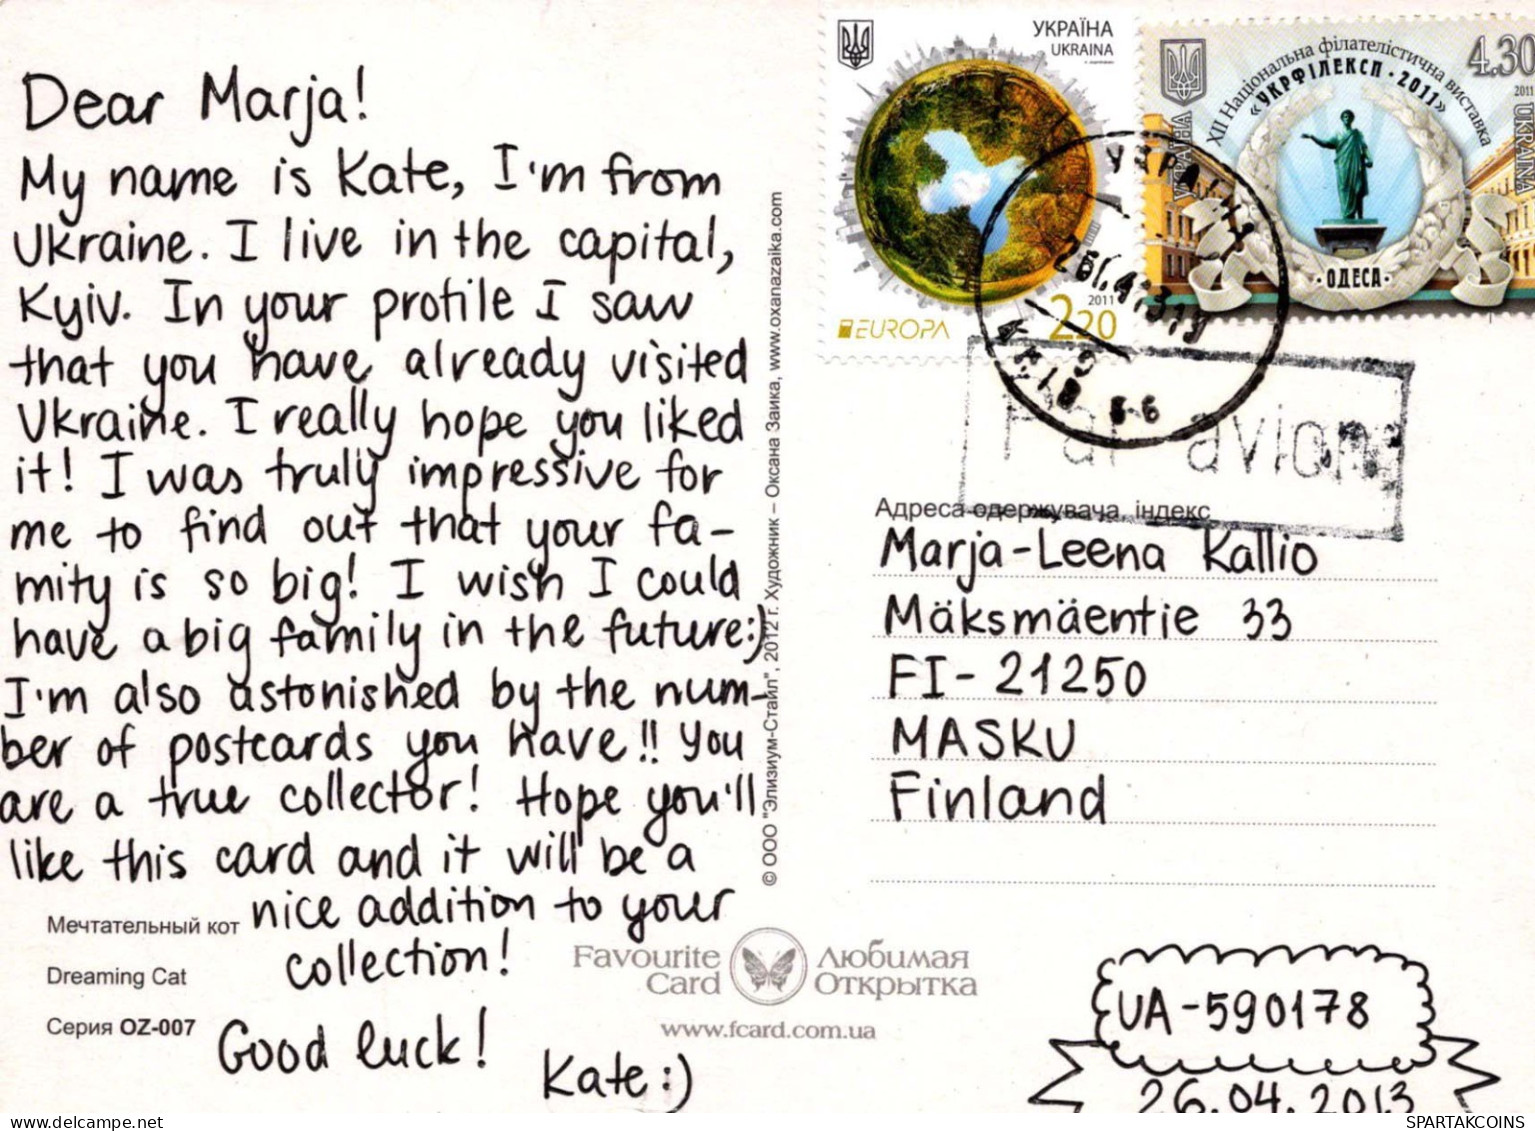 Dear Marja!
My name is Kate, I'm from
Ukraine. I live in the capital,
Kyiv. In your profile I saw
that you have already visited
Ukraine. I really hope you liked
it! I was truly impressive for
me to find out that your fa-
mity is so big! I wish I could
have a big family in the future:)
I'm also astonished by the num-
ber of postcards you have!! You
are a true collector! Hope you'll
like this card and it will be a
nice addition to your
collection!
Good luck!
Kate:)
Мечтательный кот
Dreaming Cat
Серия OZ-007
© ООО "Элизиум-Стайл", 2012 г. Художник – Оксана Заика, www.oxanazaika.com
Favourite Card
Любимая Открытка
www.fcard.com.ua
УКРАЇНА
UKRAINA
EUROPA
2011
2.20
XII Національна філателістична виставка
«УКРФІЛЕКСП·2011»
4.30
2011
УКРАЇНА
UKRAINA
·ОДЕСА·
Par avion
Адреса одержувача, індекс
Marja-Leena Kallio
Mäksmäentie 33
FI-21250
MASKU
Finland
UA-590178
26.04.2013
delcampe.net
SPARTAKCOINS